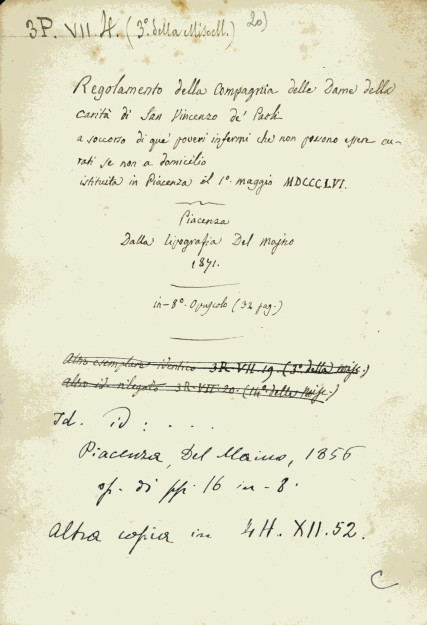 3P. VII. 4. (3º della Miscell.) 20)
Regolamento della Compagnia delle Dame della
carità di San Vincenzo de' Paoli
a soccorso di que' poveri infermi che non possono essere cu-
rati se non a domicilio
istituita in Piacenza il 1º maggio MDCCCLVI.
Piacenza
Dalla tipografia Del Majno
1871.
in-8º. Opuscolo (32 pag.)
Altro esemplare identico 3R.VII.19. (3º della Misc.)
Altro id. rilegato 3R.VII.20. (14º della Misc.)
Id. id : . . . .
Piacenza, Del Maino, 1856
op. di pp. 16 in-8.
Altra copia in 4H. XII. 52.
C